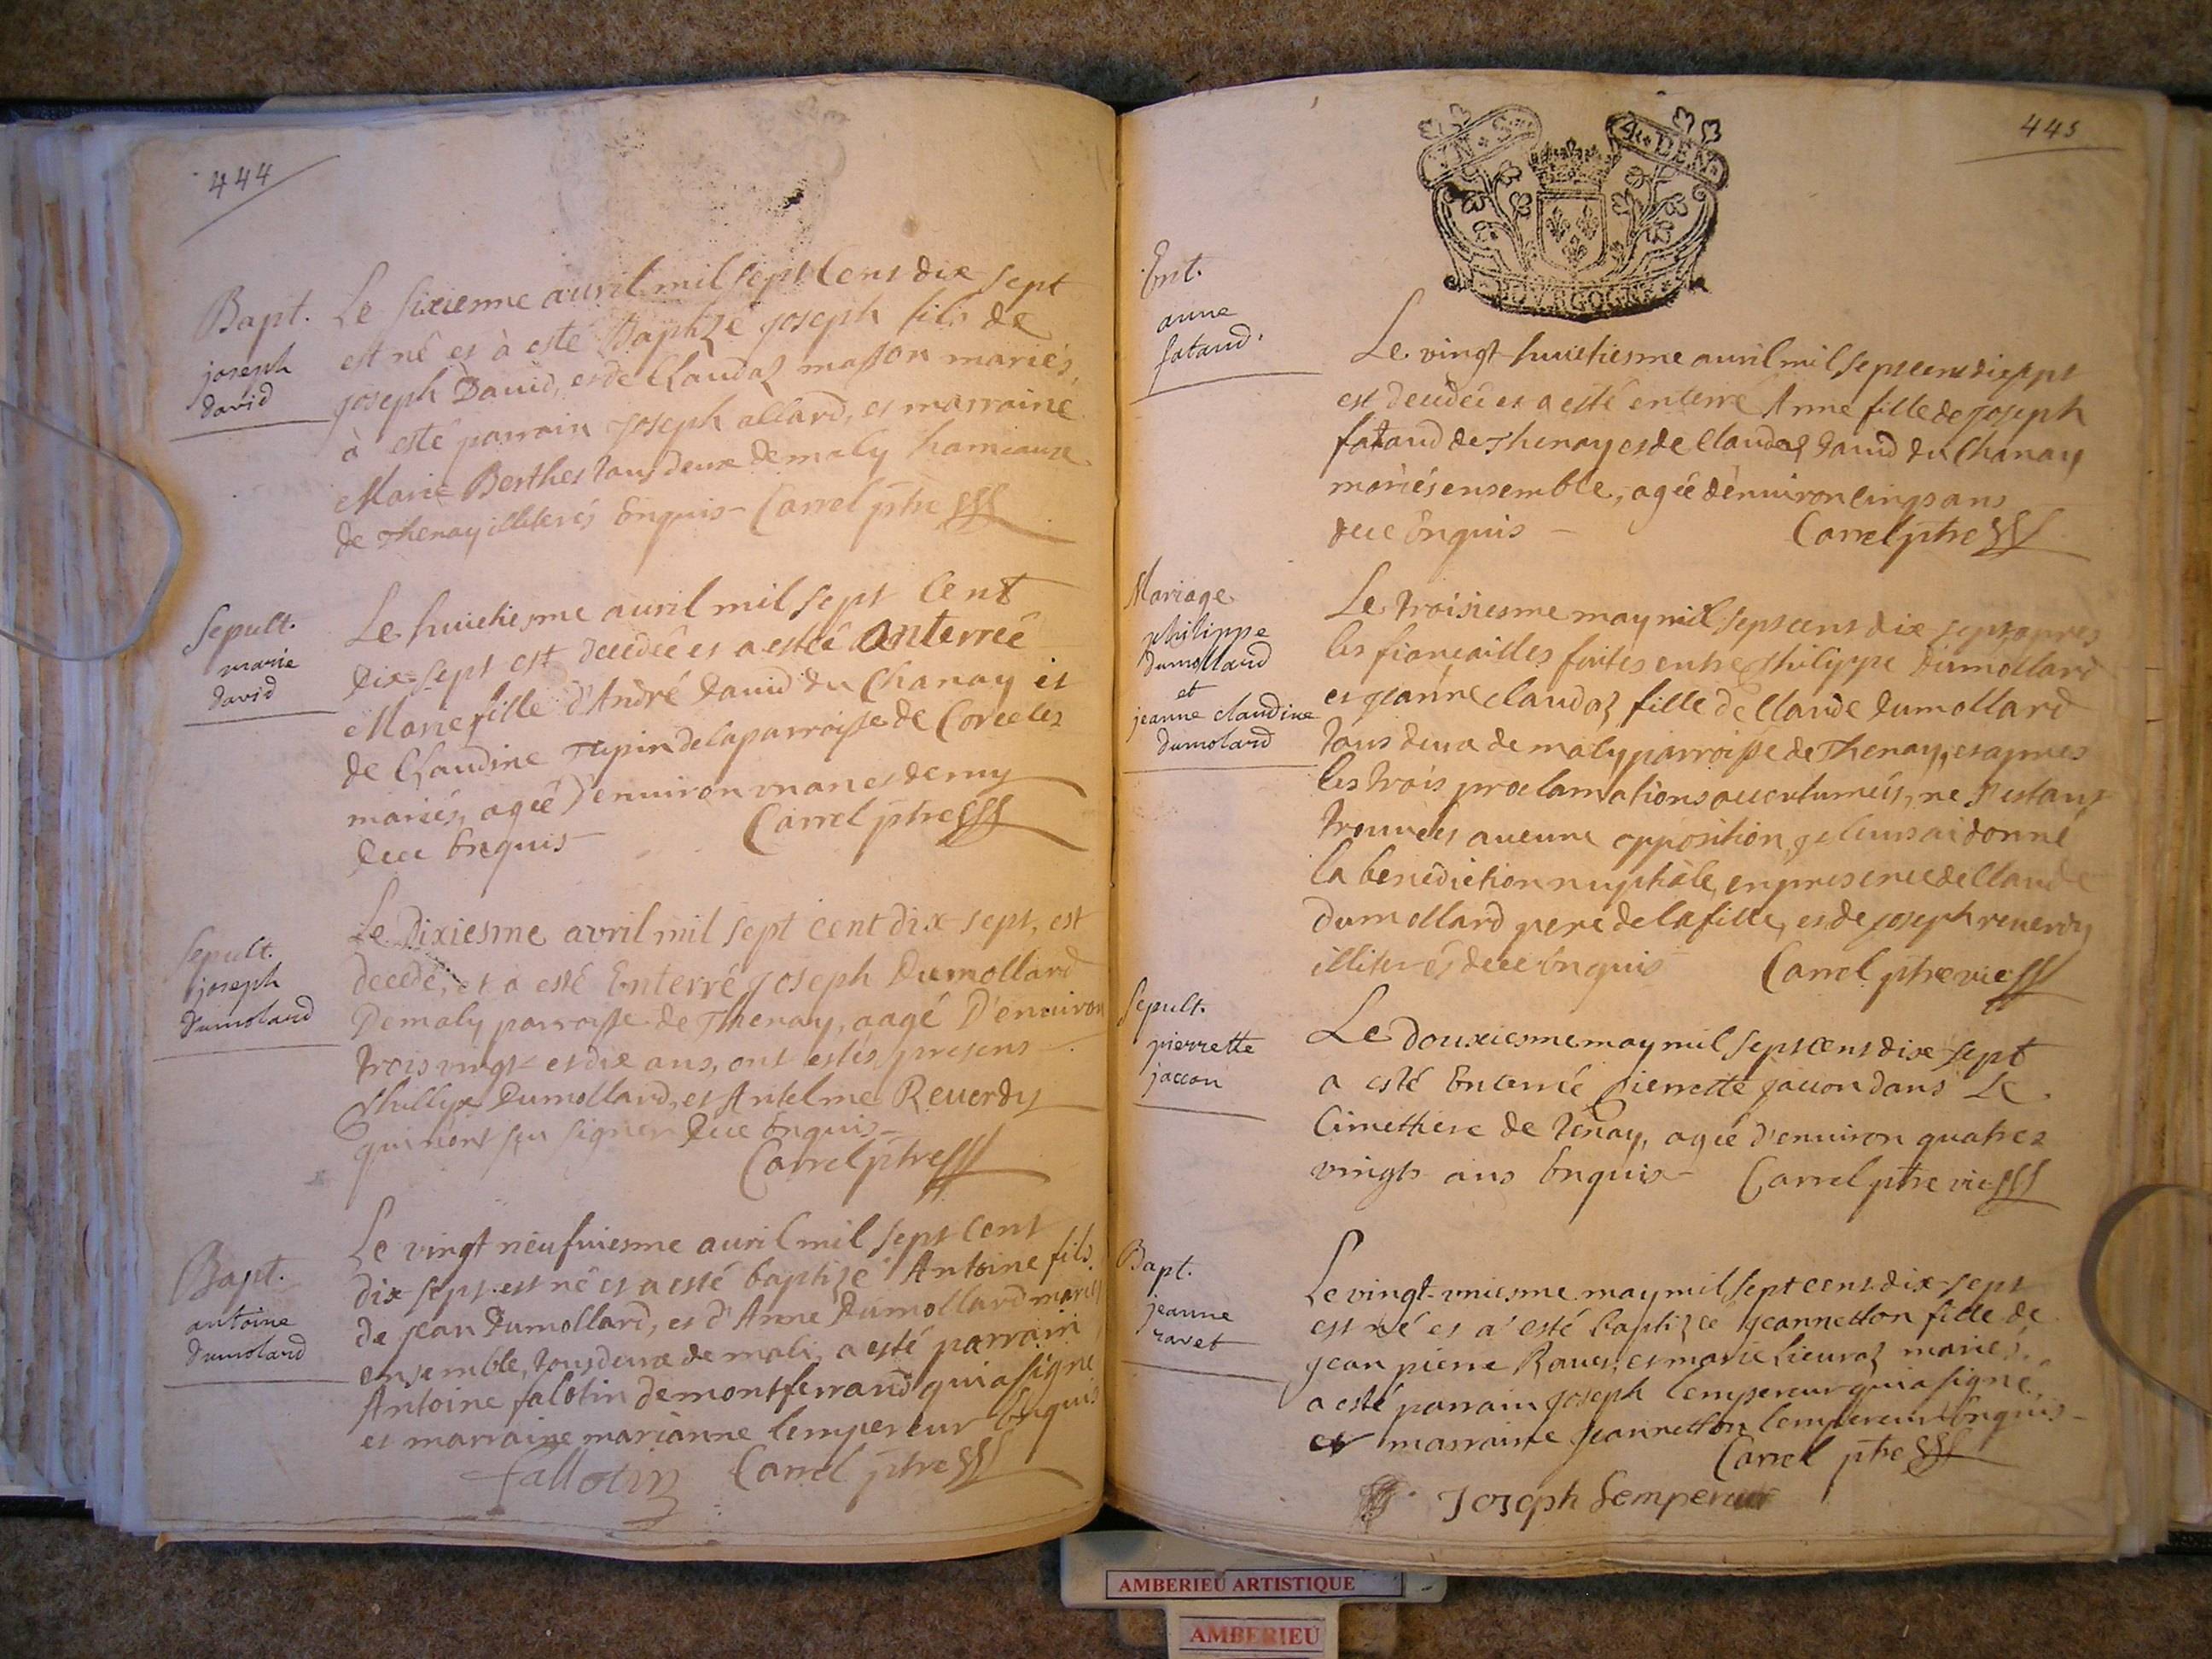 444
Bapt.
joseph
david
Le sixienne auril mil sept Cens dix sept
est né es à esté Baptizé joseph fils de
joseph Dauid, es de Claudaz masson mariés,
à esté parrain joseph allard, es marraine
Marie Berthet tous deux de maly hameaux
de Thenay illiterés Enquis Carrel ptre
Sepult.
marie
david
Le huictiesme auril mil sept Cent
dix-sept est decedée es a estée enterreé
Marie fille d'André dauid du Chanay et
de Claudine Tupin de la parroisse de Corcelles
mariés, ageé d'enuiron vn an es demy
dece Enquis Carrel ptre
Sepult.
joseph
dumolard
Le Dixiesme avril mil sept cent dix-sept, est
decedé, et a esté Enterré joseph Dumollard
De maly parroisse de Thenay, aagé D'enuiron
trois vingt es dix ans, ont estés presens
Phillipe Dumollard, es Antelme Reuerdy
qui n'ont sçu signer dece Enquis
Carrel ptre
Bapt.
antoine
dumolard
Le vingt neufuiesme auril mil sept Cens
dix sept est né es a esté baptizé Antoine fils
de jean Dumollard, es d'Anne Dumollard mariés
ensemble, tous deux de mali, a esté parrain
Antoine falotin de montferrand qui a signé
es marraine marianne lempereur Enquis
fallotin Carrel ptre
445
VN S
4 DEN
BOVRGOGNE
Ent.
anne
fataud.
Le vingt-huictiesme auril mil sept cens dix sept
est decedeé es a esté enterré Anne fille de joseph
fataud de Thenay es de Claudaz dauid du Chanay
mariés ensemble, ageé d'enuiron cinqs ans
dece Enquis Carrel ptre
Mariage
philippe
dumollard
et
jeanne claudine
dumolard
Le troisiesme may mil sept cens dix sept, apres
les fiancailles faites entre Philippe Dumollard
es jeanne claudaz fille de Claude Dumollard
tous deux de maly parroisse de Thenay, es apres
les trois proclamations accoutumeés, ne s'estans
trouueés aucune opposition, je leurs ai donné
la benediction nuptiale, en presence de Claude
Dumollard pere de la fille, es de joseph reuerdy
illiterés dece Enquis Carrel ptre vic
Sepult.
pierrette
jaccon
Le douxiesme may mil sept cens dix sept
a esté Enterreé pierrette jaccon dans Le
Cimethiere de Tenay, ageé d'enuiron quatres
vingts ans Enquis Carrel ptre vic
Bapt.
jeanne
ravet
Le vingt-vniesme may mil sept cens dix-sept
est né es a esté baptizeé jeannetton fille de
jean pierre Rauet, es marie Lieuraz mariés.
a esté parrain joseph lempereur qui a signé,
es marraine jeannetton lempereur Enquis
Carrel ptre
Joseph Lempereur
AMBERIEU ARTISTIQUE
AMBERIEU